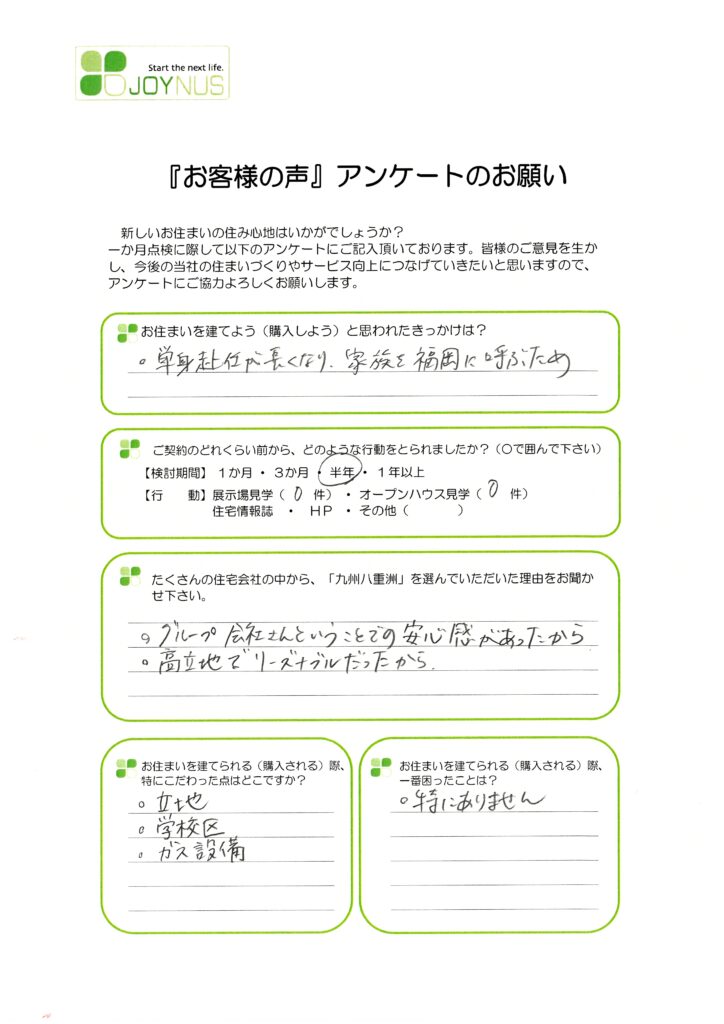 Start the next life.
JOYNUS
『お客様の声』アンケートのお願い
新しいお住まいの住み心地はいかがでしょうか？
一か月点検に際して以下のアンケートにご記入頂いております。皆様のご意見を生か
し、今後の当社の住まいづくりやサービス向上につなげていきたいと思いますので、
アンケートにご協力よろしくお願いします。
お住まいを建てよう（購入しよう）と思われたきっかけは？
○ 単身赴任が長くなり、家族を福岡に呼ぶため
ご契約のどれくらい前から、どのような行動をとられましたか？（○で囲んで下さい）
【検討期間】 １か月 ・ ３か月 ・ 半年 ・ １年以上
【行　動】展示場見学（ 0 件） ・ オープンハウス見学（ 0 件）
住宅情報誌 ・ ＨＰ ・ その他（　　　）
たくさんの住宅会社の中から、「九州八重洲」を選んでいただいた理由をお聞か
せ下さい。
○ グループ会社さんということでの安心感があったから
○ 高立地でリーズナブルだったから.
お住まいを建てられる（購入される）際、
特にこだわった点はどこですか？
○ 立地
○ 学校区
○ ガス設備
お住まいを建てられる（購入される）際、
一番困ったことは？
○ 特にありません